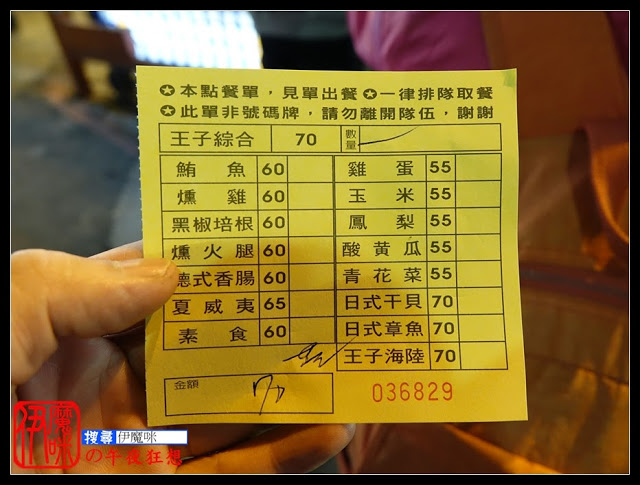 ✪本點餐單，見單出餐✪一律排隊取餐
✪此單非號碼牌，請勿離開隊伍，謝謝
王子綜合 70 數量
鮪魚 60 雞蛋 55
燻雞 60 玉米 55
黑椒培根 60 鳳梨 55
燻火腿 60 酸黃瓜 55
德式香腸 60 青花菜 55
夏威夷 65 日式干貝 70
素食 60 日式章魚 70
王子海陸 70
金額 70 036829
伊魔咪
搜尋 伊魔咪
の午夜狂想